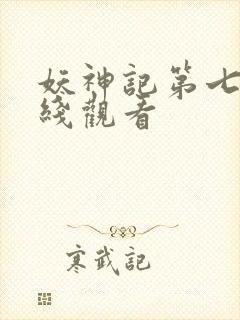 妖神記第七
綫觀看
寒武記